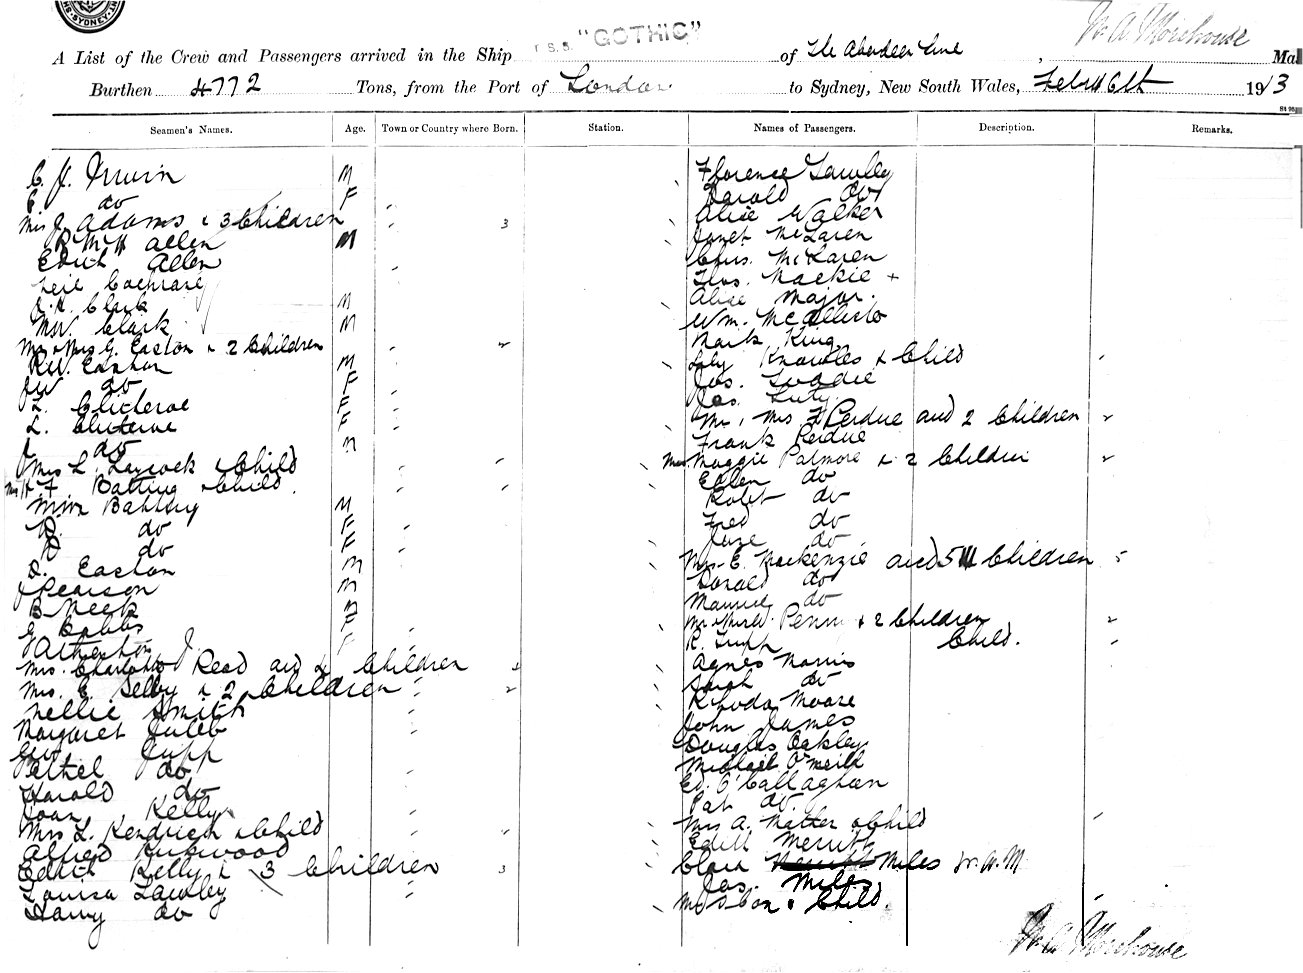 SYDNEY
T.S.S. "GOTHIC"
W. A. Morehouse
A List of the Crew and Passengers arrived in the Ship of The Aberdeen Line, Ma
Burthen 4772 Tons, from the Port of London to Sydney, New South Wales, Feby 6th 1913
Seamen's Names. Age. Town or Country where Born. Station. Names of Passengers. Description. Remarks.
C. J. Irwin M
E. do F
Mrs J. Adams & 3 Children 3
R McH Allen M
Edith Allen
Neil Cochrane
J. H. Clark M
Mw. Clark M
Mr & Mrs G. Easton & 2 Children 2
R.W. Cannon M
JW do F
L. Clitheroe F
L. Clitheroe F
J do M
Mrs L. Laycock & Child
Mrs H F. Batting & Child.
Battey M
do F
do F
D. Easton M
J Pearson M
B Meek M
G Bobbs F
Atherton J. F
Mrs. Charlotte Read and 4 Children 4
Mrs. E. Selby & 2 Children 2
Nellie Smith
Margaret Juleb
Geo Jupp
Ethel do
Harold do
Joan Kelly
Mrs L. Kendrick & Child
Alfred Kirkwood
Edith Kelly & 3 Children 3
Louisa Lawley
Harry do
Florence Lawley
Harold do
Alice Walker
Janet McLaren
Chris. McLaren
Thos. Mackie +
Alice Major.
Wm. McAllister
Mark King
Lily Knowles & Child
Jas. Luddie
Jas. Luty
Mr, Mrs F Perdue and 2 Children 2
Frank Perdue
Mrs Maggie Palmore & 2 Children 2
Ellen do
Robt do
Fred do
June do
Mrs E. Mackenzie and 5 Children 5
Donald do
Maurice do
Mr & Mrs W. Penn & 2 Children 2
R. Tripp Child.
Agnes Morris
Sarah do
Rhoda Moore
John James
Douglas Oakley
Michael O'Neill
Ed. O'Callaghan
Pat do
Mrs A. Natter & Child
Edith Merritt
Clara Miles W. A. M
Jas. Miles
Mrs D Cox & Child.
W. A. Morehouse